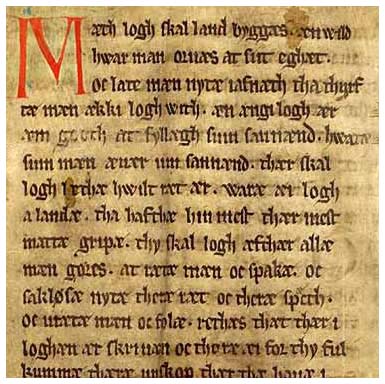 Mæth logh skal land byggæs. æn wild
hwær man orwæs at sut eghæt.
oc late mæn nytæ iafnæth tha thyrf
tæ mæn ækki logh with. æn ængi logh ær
æm gooth at fyllægh sum sannænd. hwaræ
sum mæn æuær um sannænd. thær skal
logh lethæ hwilt ræt ær. waræ æi logh
a landæ. tha hafthæ hin mest thær mest
mattæ gripæ. thy skal logh æfthær allæ
mæn gøres. at rætæ mæn oc spakæ. oc
sakløsæ nytæ theræ ræt oc theræ spæth.
oc urætæ mæn oc folæ. rethæs thæt thær i
loghæn ær skriuan oc thoræ æi for thy ful
kummæ theræ unskop thær the hauæ i